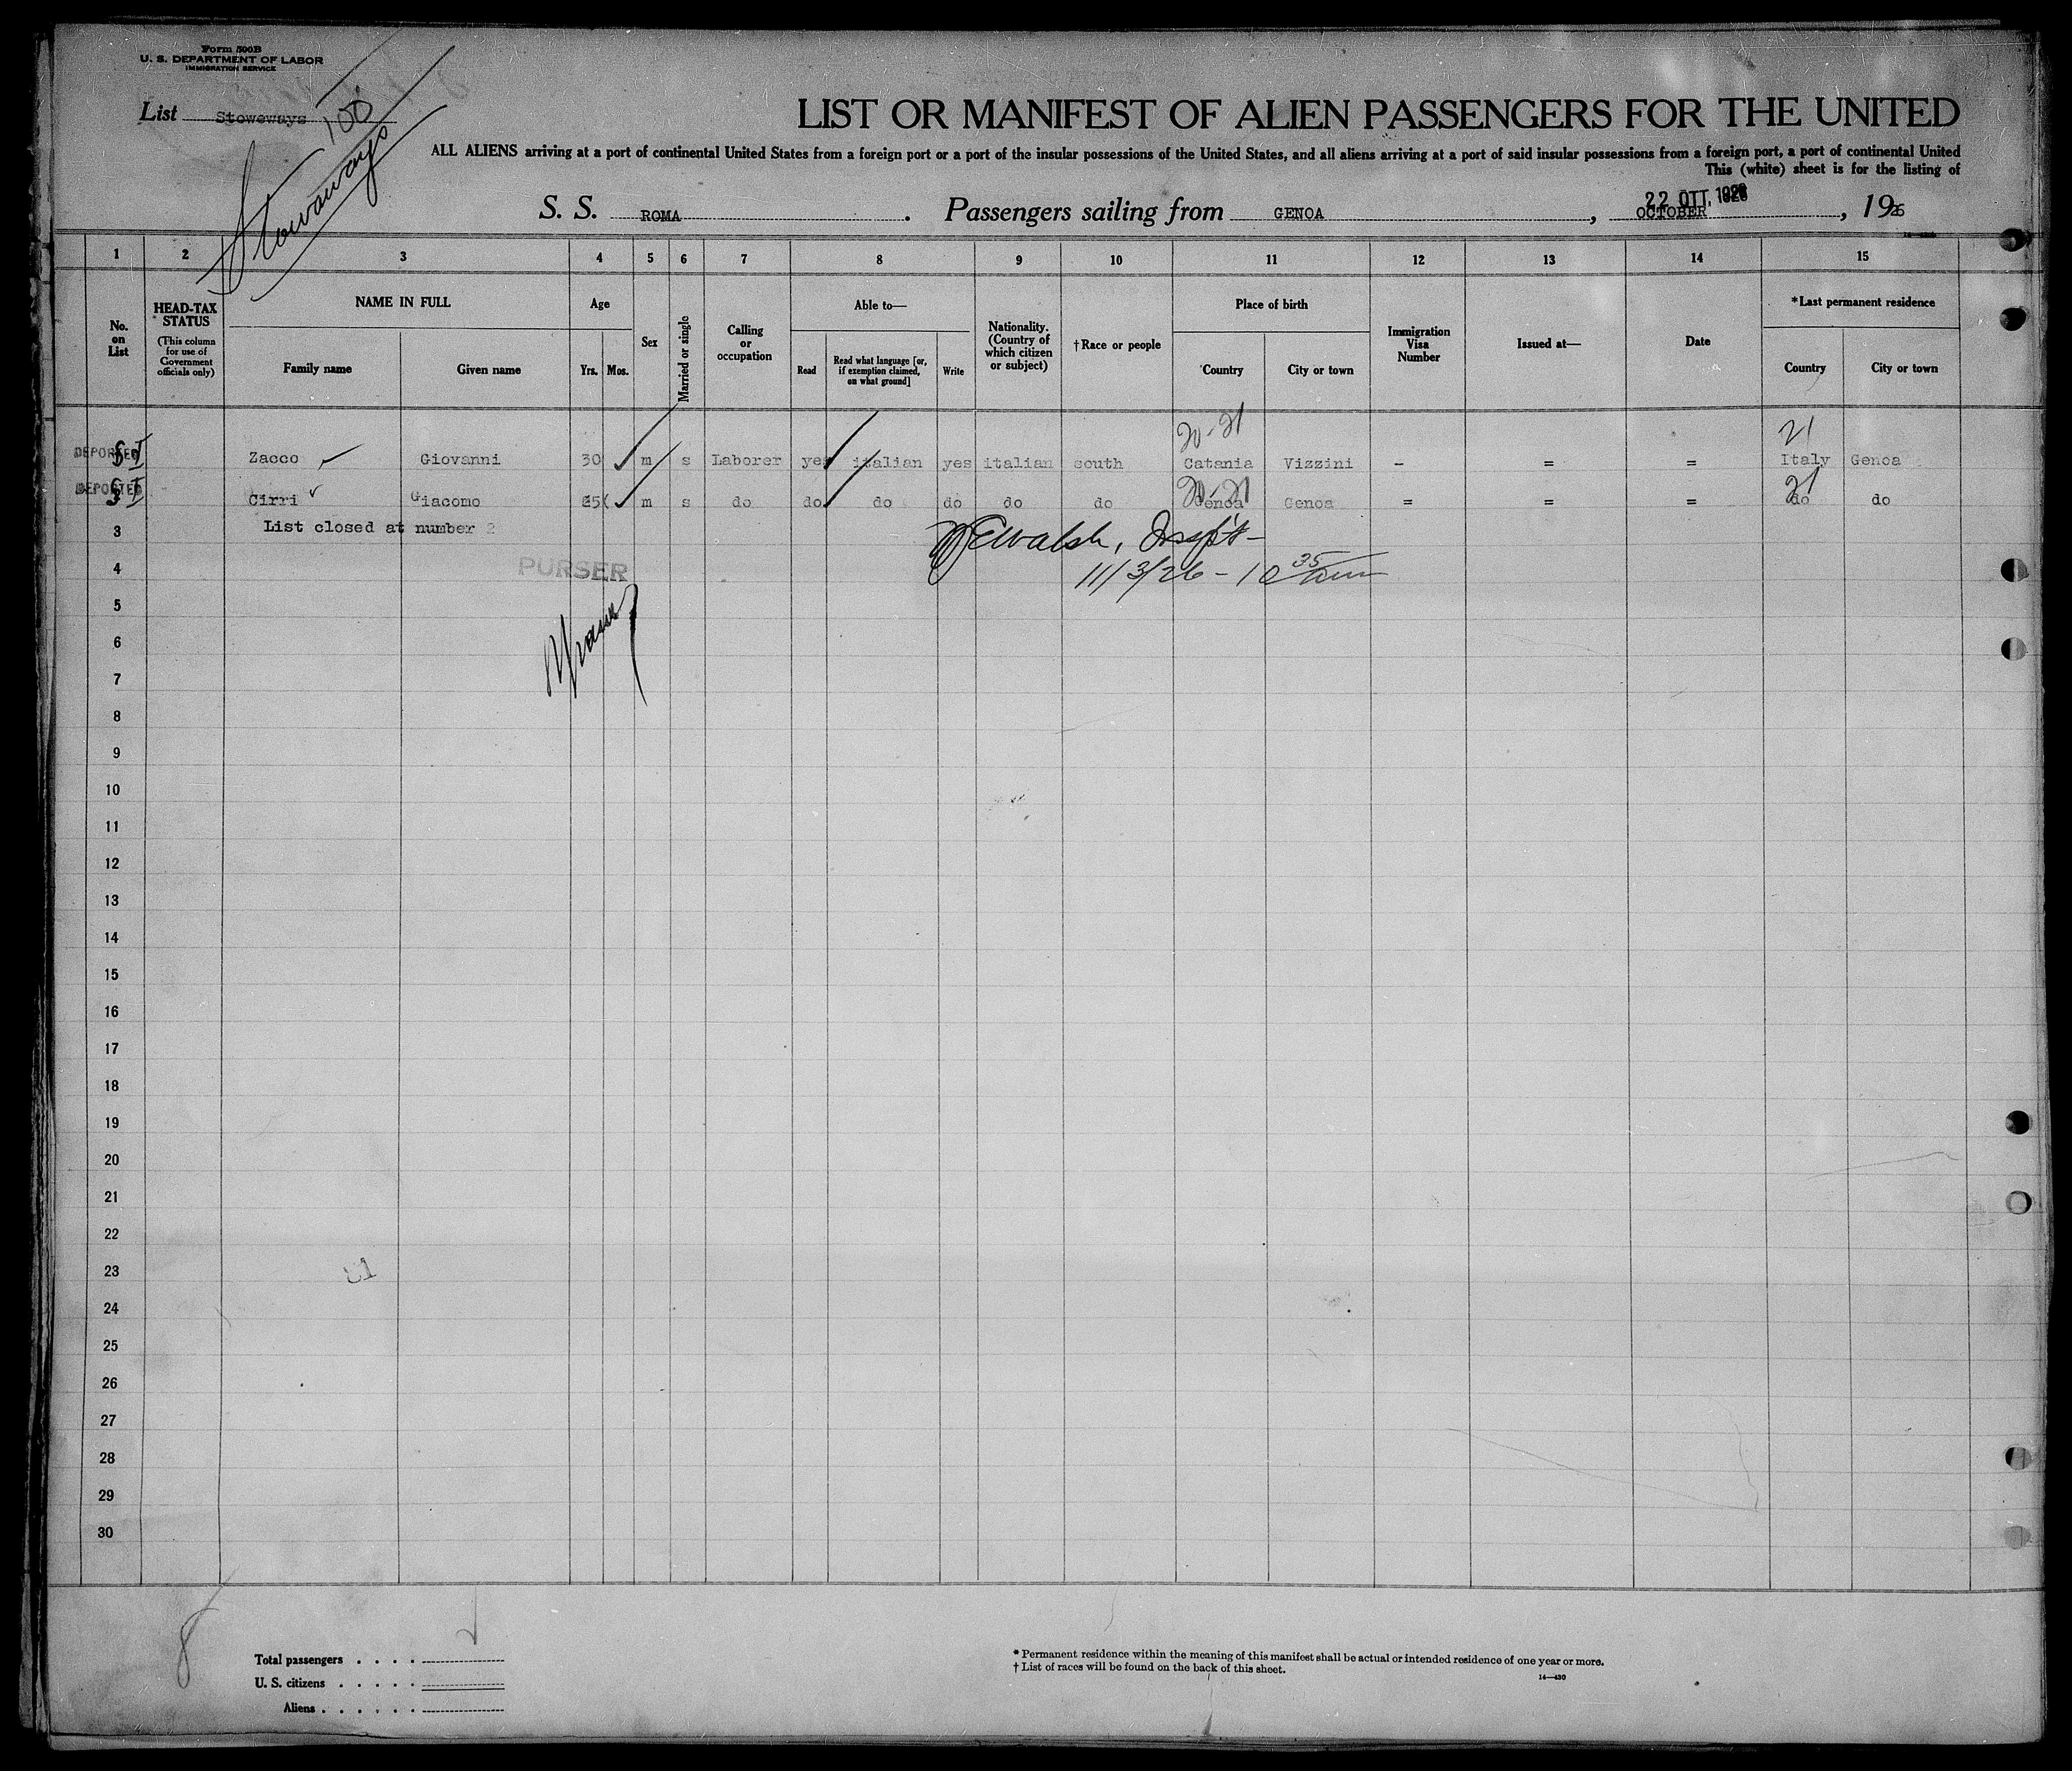 Form 500B
U. S. DEPARTMENT OF LABOR
IMMIGRATION SERVICE
List Stoweways
100
Stowaways
LIST OR MANIFEST OF ALIEN PASSENGERS FOR THE UNITED
ALL ALIENS arriving at a port of continental United States from a foreign port or a port of the insular possessions of the United States, and all aliens arriving at a port of said insular possessions from a foreign port, a port of continental United
This (white) sheet is for the listing of
S. S. ROMA. Passengers sailing from GENOA, OCTOBER 22 OTT. 1926, 1926
1 2 3 4 5 6 7 8 9 10 11 12 13 14 15
No. on List
HEAD-TAX STATUS
(This column for use of Government officials only)
NAME IN FULL
Family name Given name
Age
Yrs. Mos.
Sex
Married or single
Calling or occupation
Able to—
Read
Read what language [or, if exemption claimed, on what ground]
Write
Nationality. (Country of which citizen or subject)
†Race or people
Place of birth
Country City or town
Immigration Visa Number
Issued at—
Date
*Last permanent residence
Country City or town
20-21 21
DEPORTED SI Zacco Giovanni 30 m s Laborer yes italian yes italian south Catania Vizzini - = = Italy Genoa
20-21 21
DEPORTED SI Cirri Giacomo 25 m s do do do do do do Genoa Genoa = = = do do
3 List closed at number 2
Walsh, Insp't-
4 PURSER
11/3/26 - 10 35 am
5
6
7
8
9
10
11
12
13
14
15
16
17
18
19
20
21
22
23
24
25
26
27
28
29
30
8
Total passengers . . . .
U. S. citizens . . . . .
Aliens . . . . . .
* Permanent residence within the meaning of this manifest shall be actual or intended residence of one year or more.
† List of races will be found on the back of this sheet.
14—430